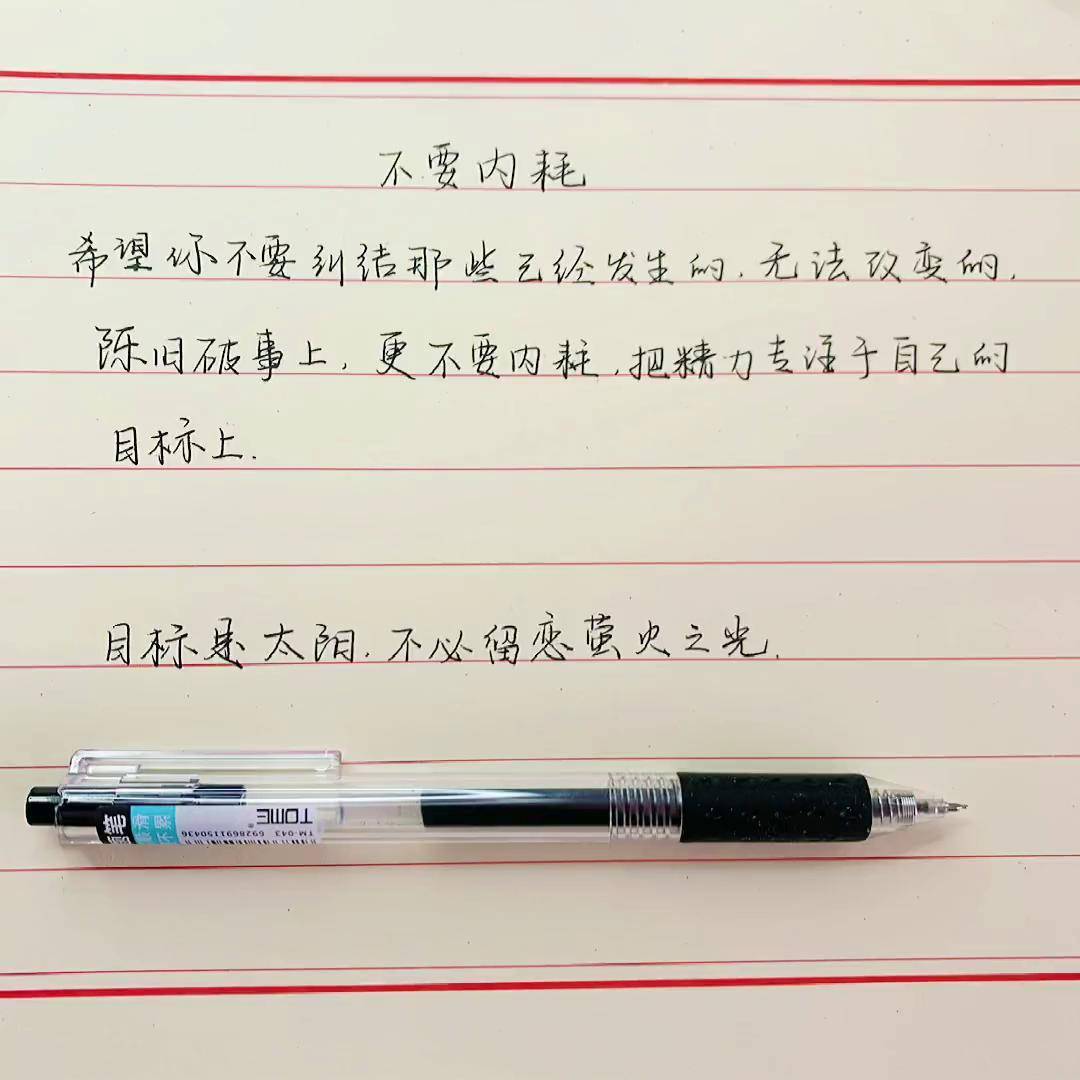 不要内耗
希望你不要纠结那些已经发生的.无法改变的.
陈旧破事上,更不要内耗,把精力专注于自己的
目标上.
目标是太阳.不必留恋萤火之光.
TOME
TM-043 69286691150436